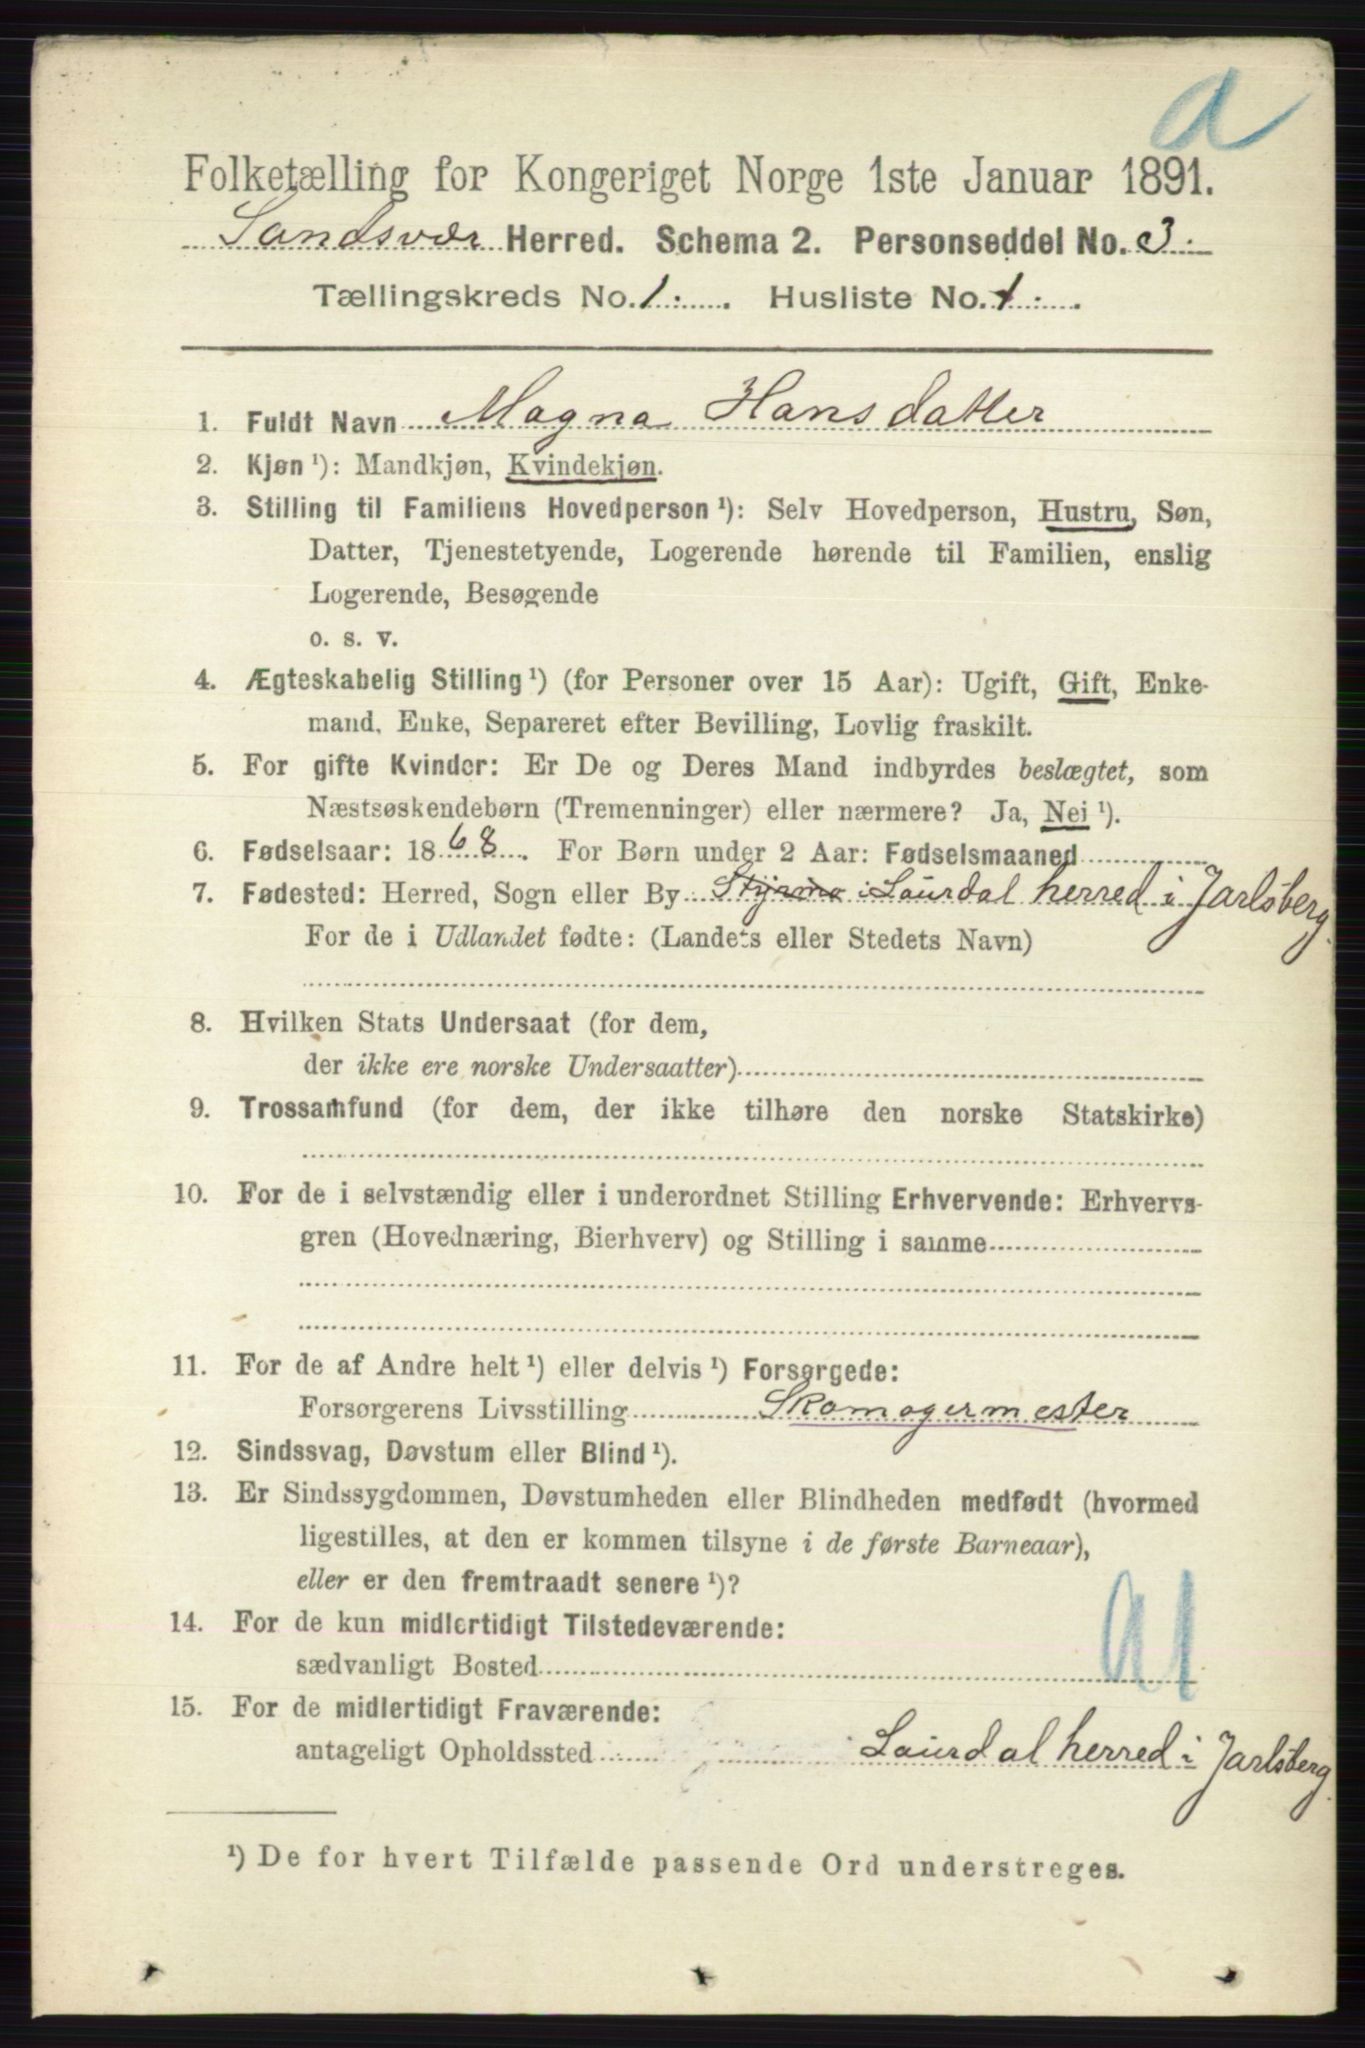 a
Folketælling for Kongeriget Norge 1ste Januar 1891.
Sandsvær Herred. Schema 2. Personseddel No. 3.
Tællingskreds No. 1. Husliste No. 1.
1. Fuldt Navn Magna Hansdatter
2. Kjøn ¹): Mandkjøn, Kvindekjøn.
3. Stilling til Familiens Hovedperson ¹): Selv Hovedperson, Hustru, Søn,
Datter, Tjenestetyende, Logerende hørende til Familien, enslig
Logerende, Besøgende
o. s. v.
4. Ægteskabelig Stilling ¹) (for Personer over 15 Aar): Ugift, Gift, Enke-
mand, Enke, Separeret efter Bevilling, Lovlig fraskilt.
5. For gifte Kvinder: Er De og Deres Mand indbyrdes beslægtet, som
Næstsøskendebørn (Tremenninger) eller nærmere? Ja, Nei ¹).
6. Fødselsaar: 1868. For Børn under 2 Aar: Fødselsmaaned
7. Fødested: Herred, Sogn eller By Styrmo i Laurdal herred i Jarlsberg.
For de i Udlandet fødte: (Landets eller Stedets Navn)
8. Hvilken Stats Undersaat (for dem,
der ikke ere norske Undersaatter)
9. Trossamfund (for dem, der ikke tilhøre den norske Statskirke)
10. For de i selvstændig eller i underordnet Stilling Erhvervende: Erhvervs-
gren (Hovednæring, Bierhverv) og Stilling i samme
11. For de af Andre helt ¹) eller delvis ¹) Forsørgede:
Forsørgerens Livsstilling Skomagermester
12. Sindssvag, Døvstum eller Blind ¹).
13. Er Sindssygdommen, Døvstumheden eller Blindheden medfødt (hvormed
ligestilles, at den er kommen tilsyne i de første Barneaar),
eller er den fremtraadt senere ¹)?
14. For de kun midlertidigt Tilstedeværende:
sædvanligt Bosted
15. For de midlertidigt Fraværende:
antageligt Opholdssted Laurdal herred i Jarlsberg.
¹) De for hvert Tilfælde passende Ord understreges.